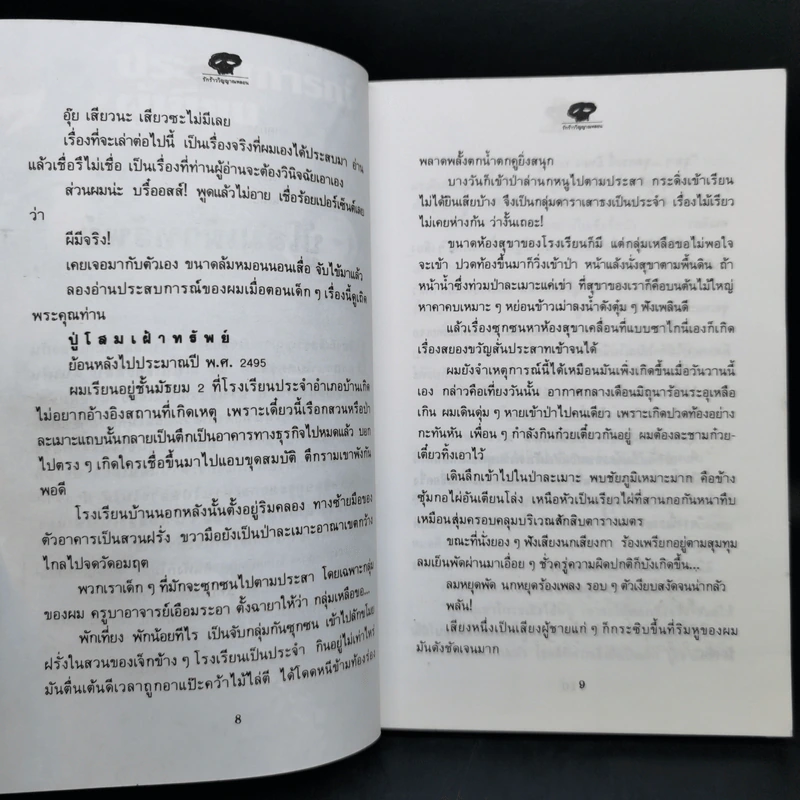 รักร้าววิญญาณหลอน
อุ๊ย เสียวนะ เสียวซะไม่มีเลย
เรื่องที่จะเล่าต่อไปนี้ เป็นเรื่องจริงที่ผมเองได้ประสบมา อ่าน
แล้วเชื่อรึไม่เชื่อ เป็นเรื่องที่ท่านผู้อ่านจะต้องวินิจฉัยเอาเอง
ส่วนผมน่ะ บรื๋ออสส์! พูดแล้วไม่อาย เชื่อร้อยเปอร์เซ็นต์เลย
ว่า
ผีมีจริง!
เคยเจอมากับตัวเอง ขนาดล้มหมอนนอนเสื่อ จับไข้มาแล้ว
ลองอ่านประสบการณ์ของผมเมื่อตอนเด็ก ๆ เรื่องนี้ดูเถิด
พระคุณท่าน
ปู่โสมเฝ้าทรัพย์
ย้อนหลังไปประมาณปี พ.ศ. 2495
ผมเรียนอยู่ชั้นมัธยม 2 ที่โรงเรียนประจำอำเภอบ้านเกิด
ไม่อยากอ้างอิงสถานที่เกิดเหตุ เพราะเดี๋ยวนี้เรือกสวนหรือป่า
ละเมาะแถบนั้นกลายเป็นตึกเป็นอาคารทางธุรกิจไปหมดแล้ว บอก
ไปตรง ๆ เกิดใครเชื่อขึ้นมาไปแอบขุดสมบัติ ตึกรามเขาพังกัน
พอดี
โรงเรียนบ้านนอกหลังนั้นตั้งอยู่ริมคลอง ทางซ้ายมือของ
ตัวอาคารเป็นสวนฝรั่ง ขวามือยังเป็นป่าละเมาะอาณาเขตกว้าง
ไกลไปจดวัดอมฤต
พวกเราเด็ก ๆ ที่มักจะซุกซนไปตามประสา โดยเฉพาะกลุ่ม
ของผม ครูบาอาจารย์เอือมระอา ตั้งฉายาให้ว่า กลุ่มเหลือขอ...
พักเที่ยง พักน้อยทีไร เป็นจับกลุ่มกันซุกซน เข้าไปลักขโมย
ฝรั่งในสวนของเจ็กข้าง ๆ โรงเรียนเป็นประจำ กินอยู่ไม่เท่าไหร่
มันตื่นเต้นดีเวลาถูกอาแป๊ะคว้าไม้ไล่ตี ได้โดดหนีข้ามท้องร่อง
8
รักร้าววิญญาณหลอน
พลาดพลั้งตกน้ำตกคูยิ่งสนุก
บางวันก็เข้าป่าล่านกหนูไปตามประสา กระดิ่งเข้าเรียน
ไม่ได้ยินเสียบ้าง จึงเป็นกลุ่มดาราเสาธงเป็นประจำ เรื่องไม้เรียว
ไม่เคยห่างก้น ว่างั้นเถอะ!
ขนาดห้องสุขาของโรงเรียนก็มี แต่กลุ่มเหลือขอไม่พอใจ
จะเข้า ปวดท้องขึ้นมาก็วิ่งเข้าป่า หน้าแล้งนั่งสุขาตามพื้นดิน ถ้า
หน้าน้ำซึ่งท่วมป่าละเมาะแค่เข่า ที่สุขาของเราก็คือบนต้นไม้ใหญ่
หาคาคบเหมาะ ๆ หย่อนข้าวเม่าลงน้ำดังตุ๋ม ๆ ฟังเพลินดี
แล้วเรื่องซุกซนหาห้องสุขาเคลื่อนที่แบบซาไกนี่เองก็เกิด
เรื่องสยองขวัญสั่นประสาทเข้าจนได้
ผมยังจำเหตุการณ์นี้ได้เหมือนมันเพิ่งเกิดขึ้นเมื่อวันวานนี้
เอง กล่าวคือเที่ยงวันนั้น อากาศกลางเดือนมิถุนาร้อนระอุเหลือ
เกิน ผมเดินดุ่ม ๆ หายเข้าป่าไปคนเดียว เพราะเกิดปวดท้องอย่าง
กะทันหัน เพื่อน ๆ กำลังกินก๋วยเตี๋ยวกันอยู่ ผมต้องละชามก๋วย-
เตี๋ยวทิ้งเอาไว้
เดินลึกเข้าไปในป่าละเมาะ พบชัยภูมิเหมาะมาก คือข้าง
ซุ้มกอไผ่อันเตียนโล่ง เหนือหัวเป็นเรียวไผ่ที่สานกอกันหนาทึบ
เหมือนสุ่มครอบคลุมบริเวณสักสิบตารางเมตร
ขณะที่นั่งยอง ๆ ฟังเสียงนกเสียงกา ร้องเพรียกอยู่ตามสุมทุม
ลมเย็นพัดผ่านมาเอื่อย ๆ ชั่วครู่ความผิดปกติก็บังเกิดขึ้น...
ลมหยุดพัด นกหยุดร้องเพลง รอบ ๆ ตัวเงียบสงัดจนน่ากลัว
พลัน!
เสียงหนึ่งเป็นเสียงผู้ชายแก่ ๆ ก็กระซิบขึ้นที่ริมหูของผม
มันดังชัดเจนมาก
9